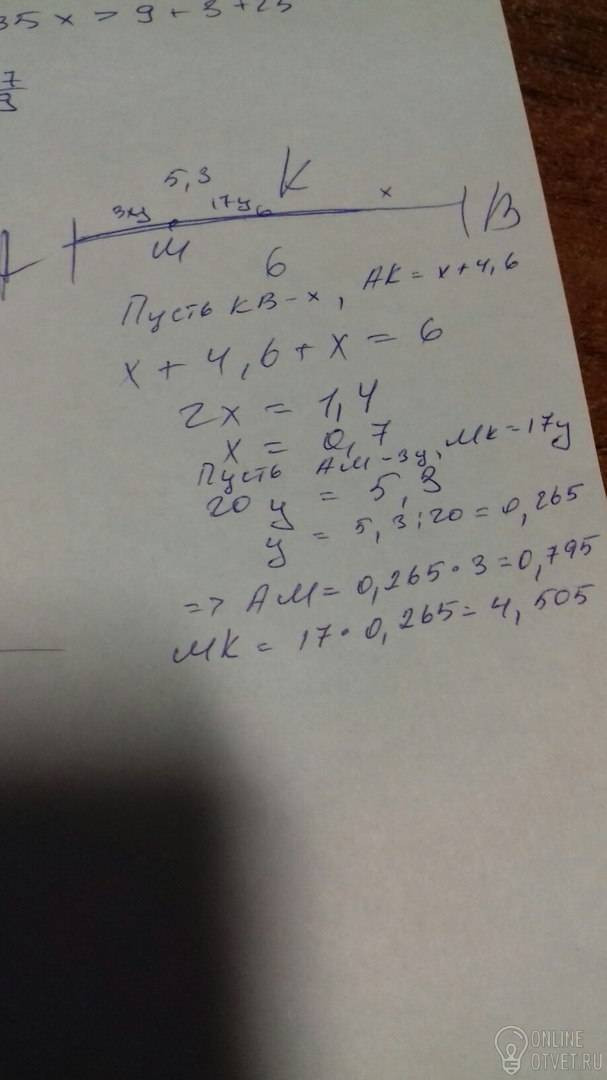 35x > 9 + 3 + 25
7
9
5,3 K
3y 17y 6 x
A M B
6
Пусть KB - x, AK = x + 4,6
x + 4,6 + x = 6
2x = 1,4
x = 0,7
Пусть AM - 3y, MK = 17y
20y = 5,3
y = 5,3 : 20 = 0,265
=> AM = 0,265 · 3 = 0,795
MK = 17 · 0,265 = 4,505
ONLINE
OTVET.RU